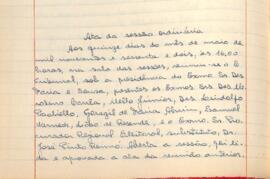 Ata da sessão ordinária
Aos quinze dias do mês de maio de
mil novecentos e sessenta e dois, às 16,00
horas, na sala das sessões, reuniu-se o
Tribunal, sob a presidência do Exmo. Sr. Des.
Faria e Sousa, presentes os Exmos. Srs. Des.
Costa, Mello Júnior, Des. Lindolfo
Paoliello, de Faria
de Resende, e o Exmo. Sr. Pro-
curador Regional Eleitoral, substituto, Dr.
José Pinto Renó. Aberta a sessão, foi li-
da e aprovada a ata da reunião anterior.